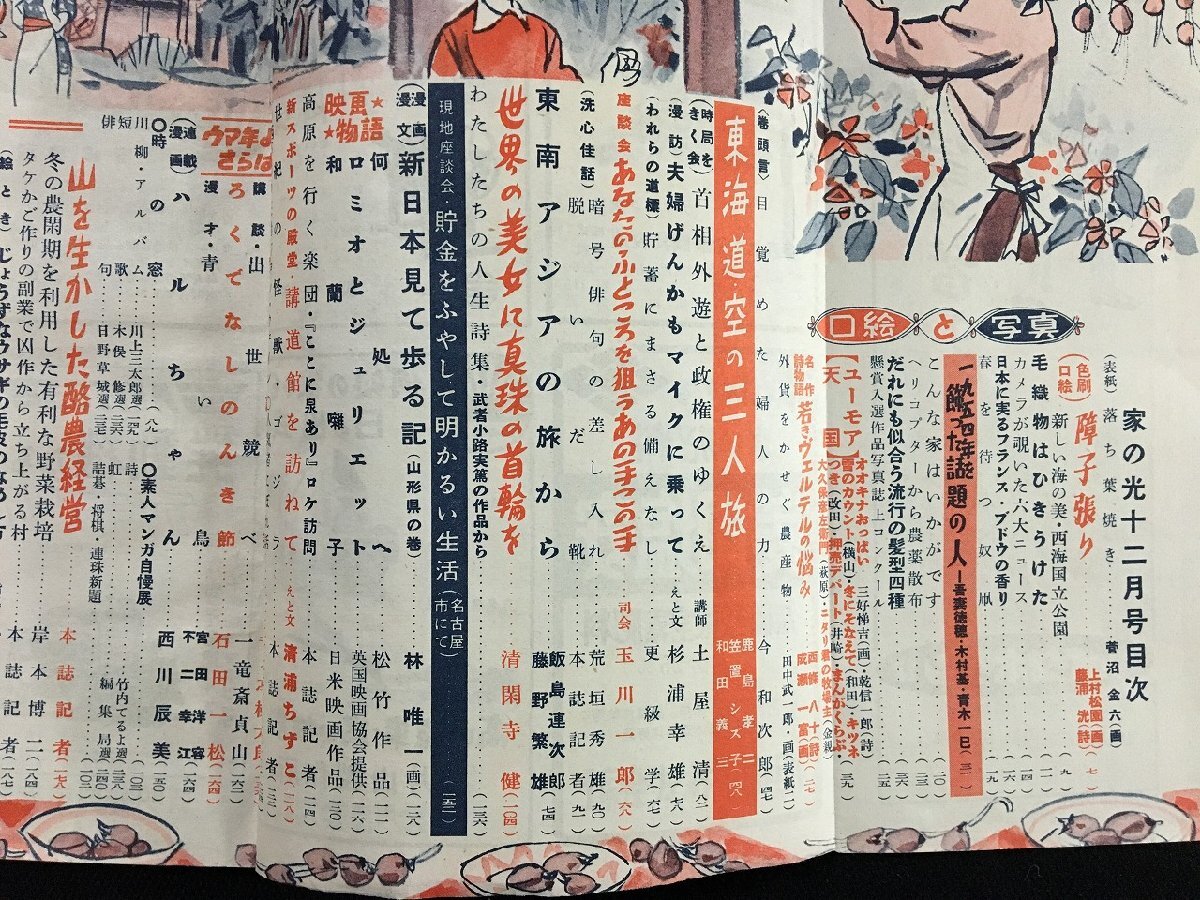 家の光十二月号目次
口絵と写真
(表紙) 落ち葉焼き……菅沼金六(画)
(色刷口絵) 障子張り 上村松園(画) 藤浦洸(詩)…七
新しい海の美・西海国立公園……九
毛織物はひきうけた……一一
カメラが覗いた六大ニュース……一四
日本に実るフランス ブドウの香り……一六
春を待つ奴凧……一九
一九五四年を飾った話題の人―吾妻徳穂・木村基・青木一日(三)
こんな家はいかがです
ヘリコプターから農薬散布
だれにも似合う流行の髪型四種
懸賞入選作品写真誌上コンクール
【ユーモア天国】
オオキナおっぱい 三好悌吉(画)・乾信一郎(詩)
雷のカウント(横山)・冬にそなえて(和田)キツネつき(改田)・押売デパート(井崎)・まんがくらぶ・
大久保彦左衛門(萩原)・ニタリ君の牧場主(金親)…三九
名作詩物語 若きヴェルテルの悩み 西條八十(詩) 成瀬一富(画)(二七)
外貨をかせぐ農産物……田中武一郎画(表紙二)
東海道・空の三人旅 鹿島孝二 笠置シズ子 和田義三(四八)
(巻頭言) 目覚めた婦人の力……今和次郎(四七)
(時局をきく会) 首相外遊と政権のゆくえ 講師 土屋清(八二)
漫訪 夫婦げんかもマイクに乗って えと文 杉浦幸雄(七六)
(われらの道標) 貯蓄にまさる備えなし……更級学(六七)
座談会 あなたのふところを狙うあの手この手 司会 玉川一郎(六八)
暗号俳句の差し入れ……荒垣秀雄(九〇)
(洗心佳話) 脱いだ靴……本誌記者(九一)
東南アジアの旅から…… 飯島連次郎 藤野繁雄(七四)
世界の美女に真珠の首輪を……清閑寺健(一〇四)
わたしたちの人生詩集・武者小路実篤の作品から……(一三六)
現地座談会・貯金をふやして明かるい生活(名古屋市にて)……(一五二)
(漫画漫文) 新日本見て歩る記(山形県の巻)……林唯一(画)(一二八)
映画物語
何処へ……松竹作品(一一一)
ロミオとジュリエット……英国映画協会提供(一二六)
和蘭囃子……日米映画作品(一二〇)
高原を行く楽団・『ここに泉あり』ロケ訪問……本誌記者(一二四)
新スポーツの殿堂・講道館を訪ねて えと文 清浦ちずこ(一二八)
ウマ年よさらば
講談・出世競べ……一竜斎貞山(一六二)
ろくでなしののんき節……石田一松(一六四)
漫才・青い鳥…… 宮田洋容 不二幸江
(連載漫画) ハルちゃん……西川辰美(一五〇)
〇時の窓……(八九)
〇素人マンガ自慢展
川柳・アルバム・川上三太郎選
短歌・木俣修選
俳句・日野草城選
詩・竹内てるよ選
虹
詰碁・将棋・連珠新題……編集局
山を生かした酪農経営……本誌記者(一七八)
冬の農閑期を利用した有利な野菜栽培……岸本博二(一八四)
タケかご作りの副業で凶作から立ち上がる村……本誌記者(一八七)
(絵とき) じょうずなウサギの毛皮のなめし方